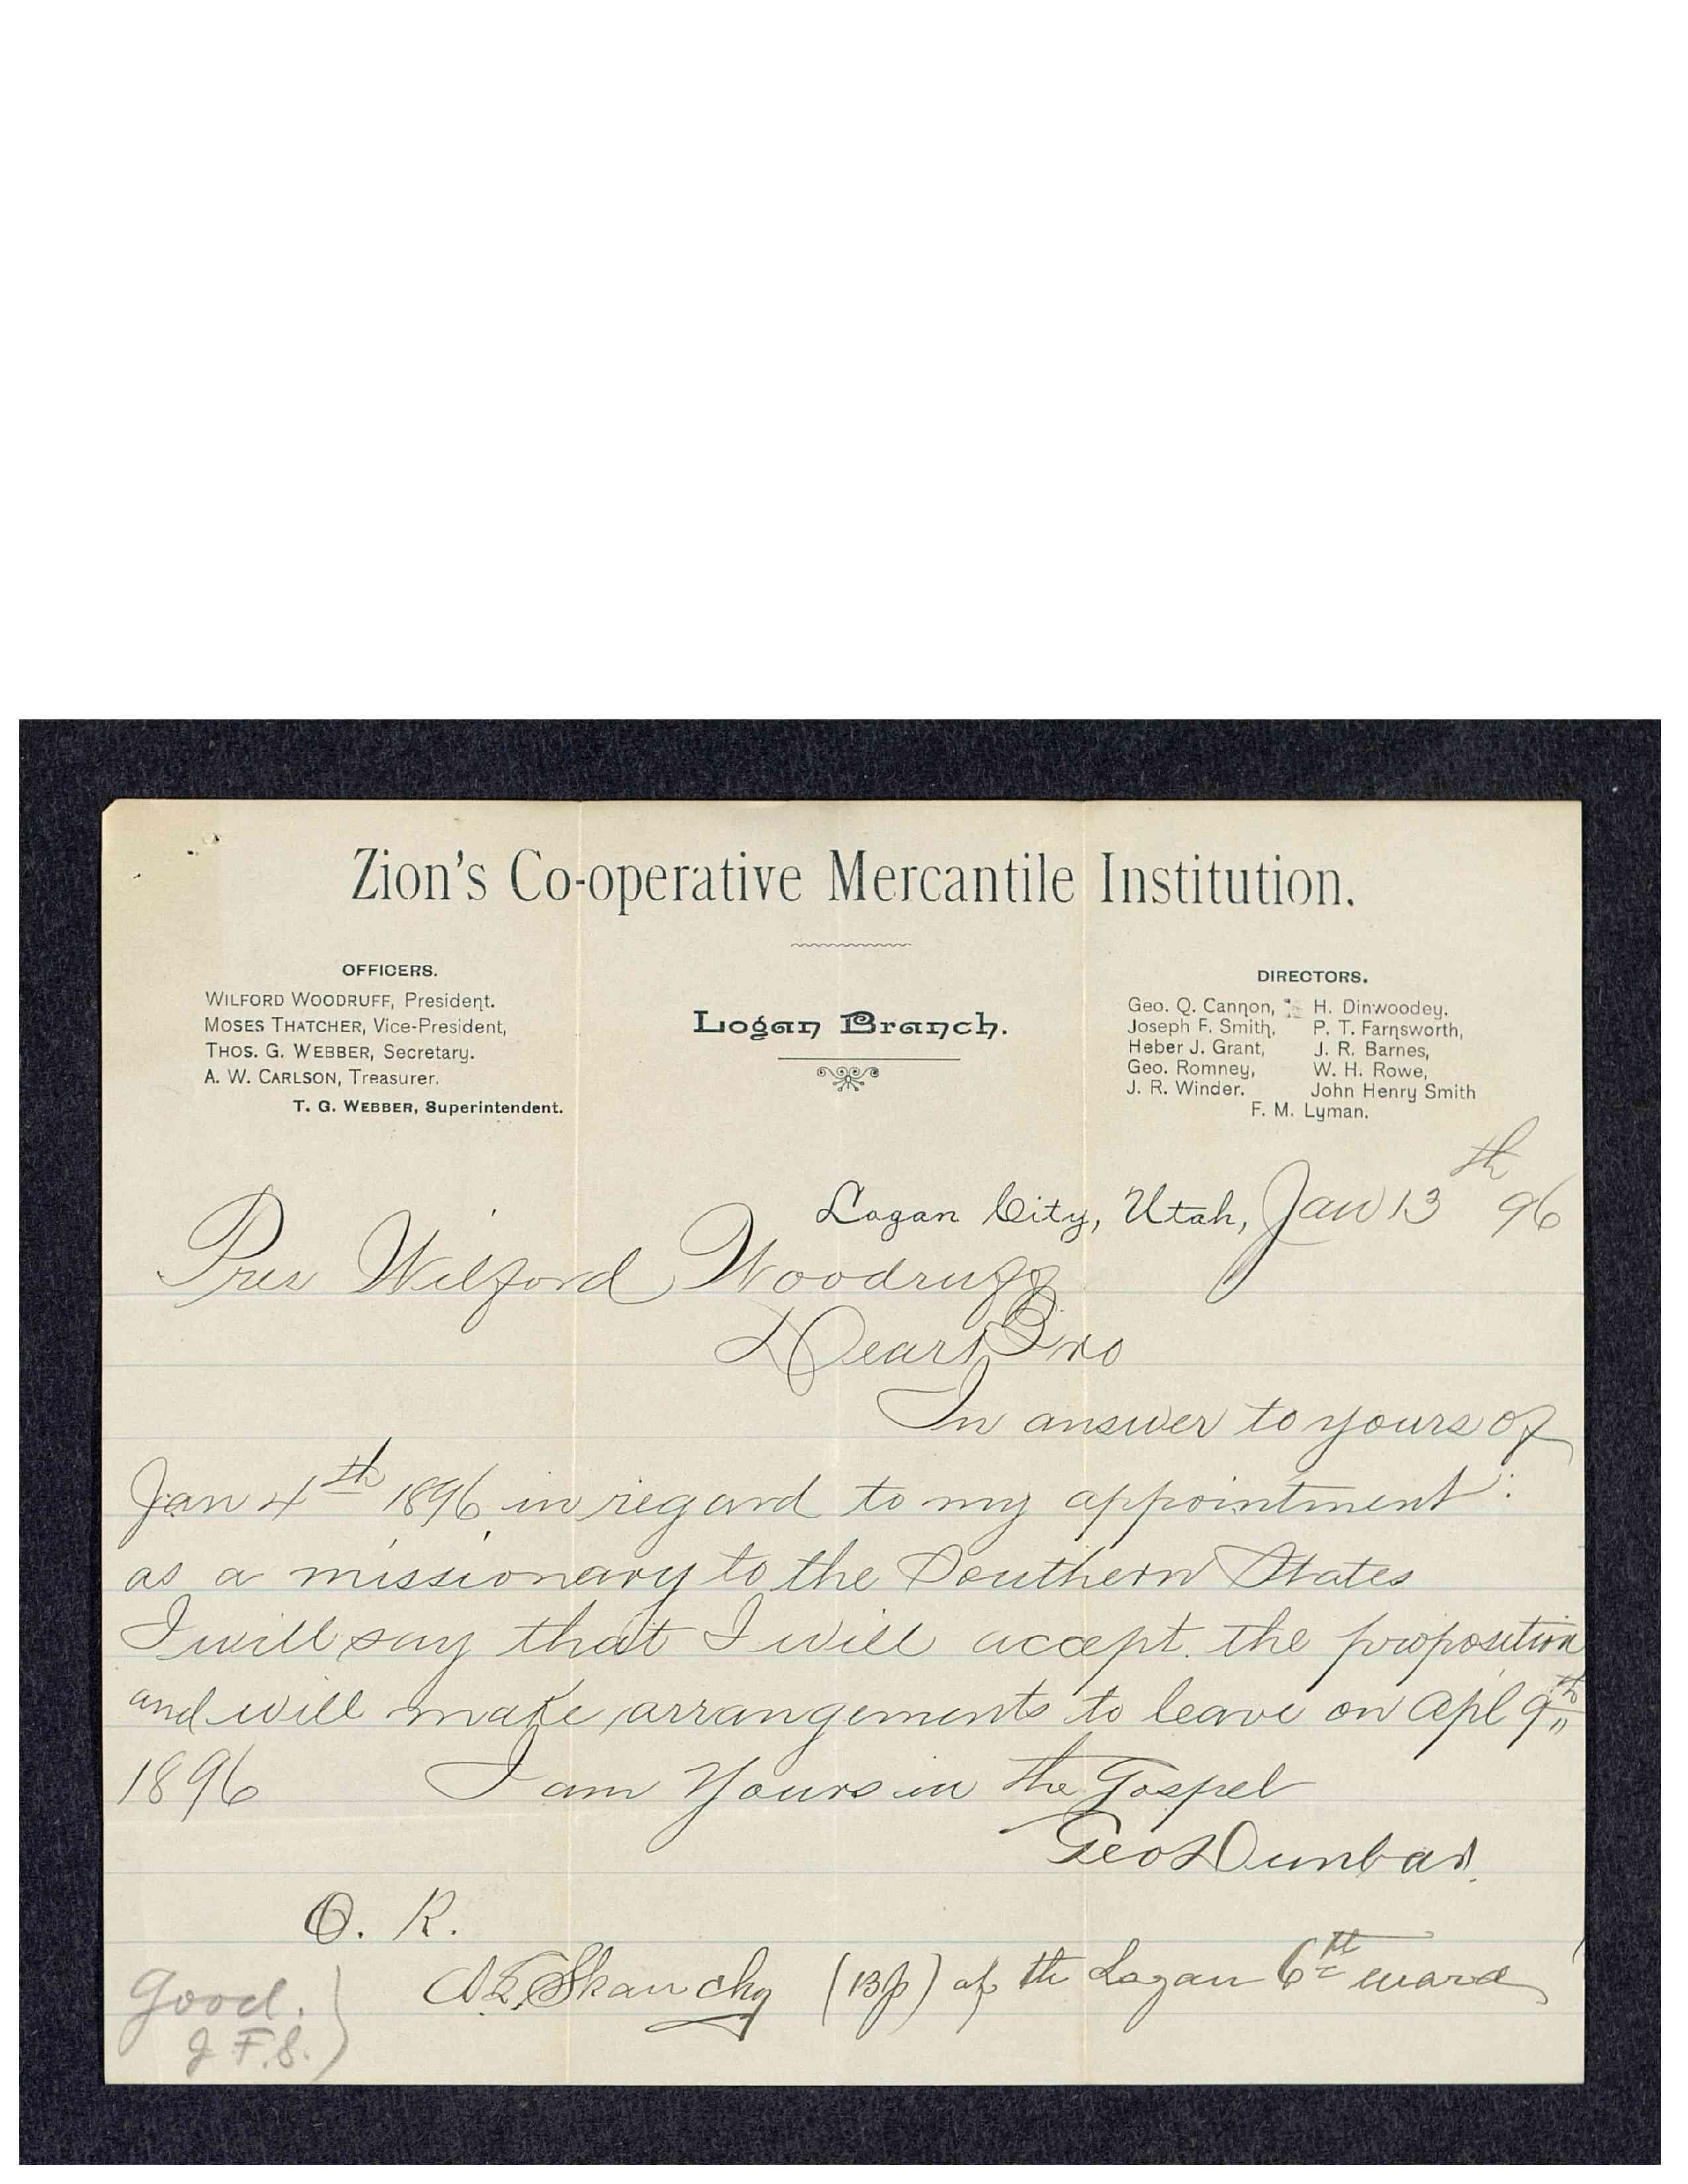 Zion's Co-operative Mercantile Institution.
OFFICERS.
WILFORD WOODRUFF, President.
MOSES THATCHER, Vice-President,
THOS. G. WEBBER, Secretary.
A. W. CARLSON, Treasurer.
T. G. WEBBER, Superintendent.
Logan Branch.
DIRECTORS.
Geo. Q. Cannon, H. Dinwoodey.
Joseph F. Smith, P. T. Farnsworth,
Heber J. Grant, J. R. Barnes,
Geo. Romney, W. H. Rowe,
J. R. Winder. John Henry Smith
F. M. Lyman.
Logan City, Utah, Jan 13th 96
Pres Wilford Woodruff
Dear Bro
In answer to yours of
Jan 4th 1896 in regard to my appointment
as a missionary to the Southern States
I will say that I will accept the proposition
and will make arrangements to leave on Apl 9th
1896 I am Yours in the Gospel
Geo Dunbar.
O. K.
Skanchy (Bp) of th Logan 6th ward
Good.
J. F. S.